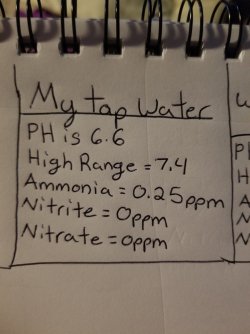 My tap water
PH is 6.6
High Range = 7.4
Ammonia = 0.25ppm
Nitrite = 0ppm
Nitrate = 0ppm